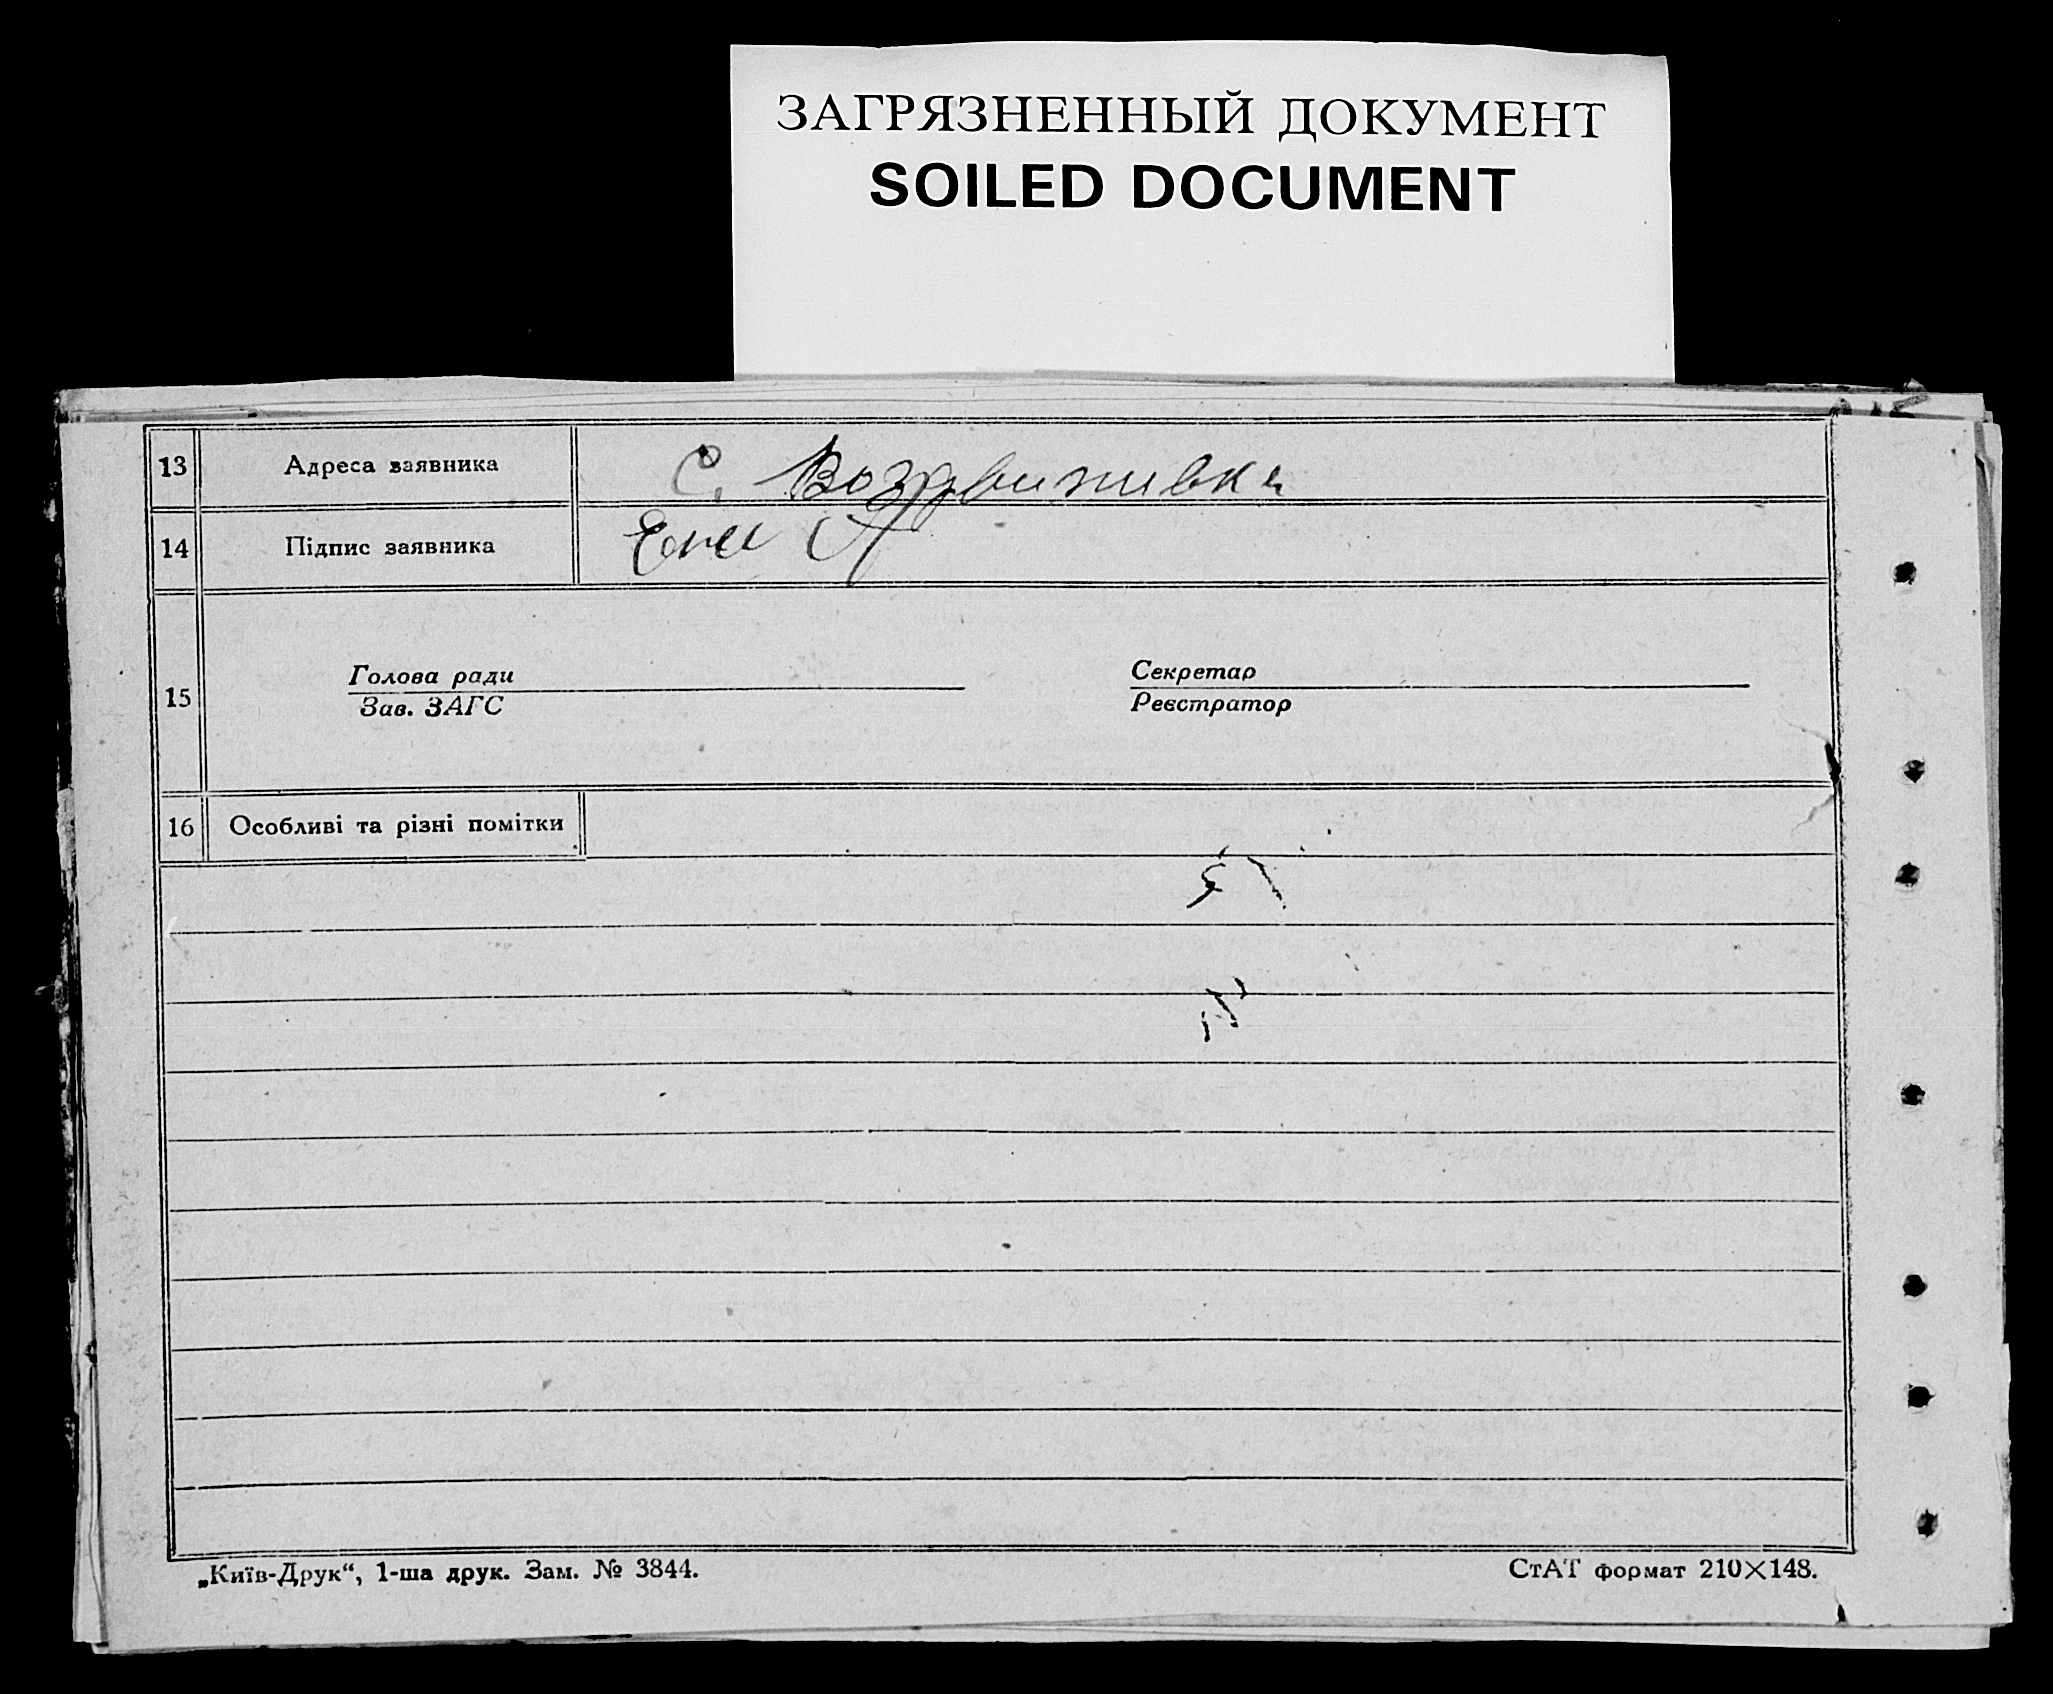 ЗАГРЯЗНЕННЫЙ ДОКУМЕНТ
SOILED DOCUMENT
13 Адреса заявника С. Воздвижівка
14 Підпис заявника
Голова ради Секретар
15
Зав. ЗАГС Реєстратор
16 Особливі та різні помітки
„Київ-Друк“, 1-ша друк. Зам. № 3844. СтАТ формат 210×148.